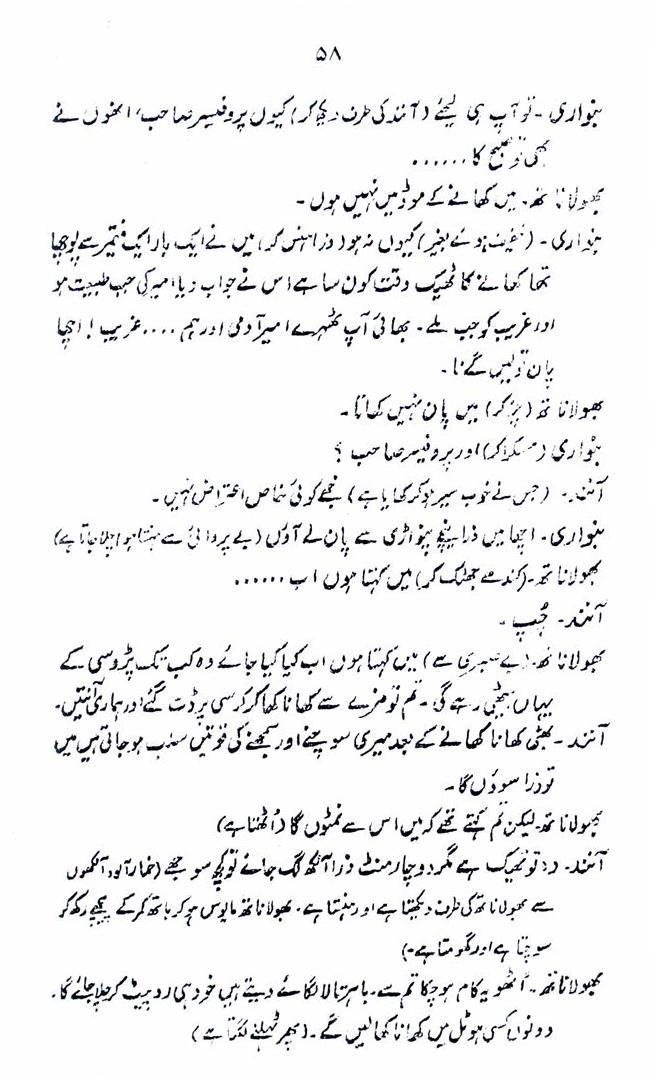 ۵۸
بنواری - تو آپ ہی لیجئے (آنند کی طرف دیکھ کر) کیوں پروفیسر صاحب، انھوں نے
بھی تو صبح کا ......
بھولا ناتھ - میں کھانے کے موڈ میں نہیں ہوں -
بنواری - (خفیف ہوئے بغیر) کیوں نہ ہو (ذرا ہنس کر) میں نے ایک بار ایک فقیر سے پوچھا
تھا کھانے کا ٹھیک وقت کون سا ہے اس نے جواب دیا امیر کی جب طبیعت ہو
اور غریب کو جب ملے - بھائی آپ ٹھہرے امیر آدمی اور ہم .... غریب ! اچھا
پان تو لیں گے نا -
بھولا ناتھ (چڑ کر) میں پان نہیں کھاتا -
بنواری (مسکرا کر) اور پروفیسر صاحب ؟
آنند - (جس نے خوب سیر ہو کر کھایا ہے) مجھے کوئی خاص اعتراض نہیں -
بنواری - اچھا میں ذرا نیچے پنواڑی سے پان لے آؤں (بے پروائی سے ہنستا ہوا چلا جاتا ہے)
بھولا ناتھ - (کندھے جھٹک کر) میں کہتا ہوں اب ......
آنند - چُپ -
بھولا ناتھ - (بے صبری سے) میں کہتا ہوں اب کیا کیا جائے وہ کب تک پڑوسی کے
یہاں بیٹھی رہے گی - تم تو مزے سے کھانا کھا کر کرسی پر ڈٹ گئے اور ہماری آنتیں -
آنند - بھئی کھانا کھانے کے بعد میری سوچنے اور سمجھنے کی قوتیں سلب ہو جاتی ہیں میں
تو ذرا سوؤں گا -
بھولا ناتھ - لیکن تم کہتے تھے کہ میں اس سے نمٹوں گا (اُٹھتا ہے)
آنند - وہ تو ٹھیک ہے مگر دو چار منٹ ذرا آنکھ لگ جائے تو کچھ سوجھے (خمار آلود آنکھوں
سے بھولا ناتھ کی طرف دیکھتا ہے اور ہنستا ہے - بھولا ناتھ مایوس ہو کر ہاتھ کمر کے پیچھے رکھ کر
سوچتا ہے اور گھومتا ہے -)
بھولا ناتھ - اُٹھو یہ کام ہو چکا تم سے - باہر تالا لگائے دیتے ہیں خود ہی رو پیٹ کر چلا جائے گا -
دونوں کسی ہوٹل میں کھانا کھا لیں گے - (پھر ٹہلنے لگتا ہے)